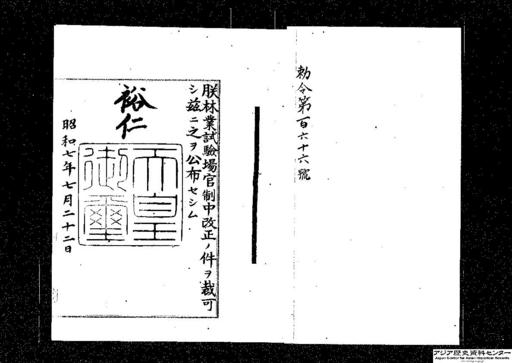 勅令第百六十六號
朕林業試驗場官制中改正ノ件ヲ裁可
シ茲ニ之ヲ公布セシム
裕仁
天皇
御璽
昭和七年七月二十二日
アジア歴史資料センター
Japan Center for Asian Historical Records